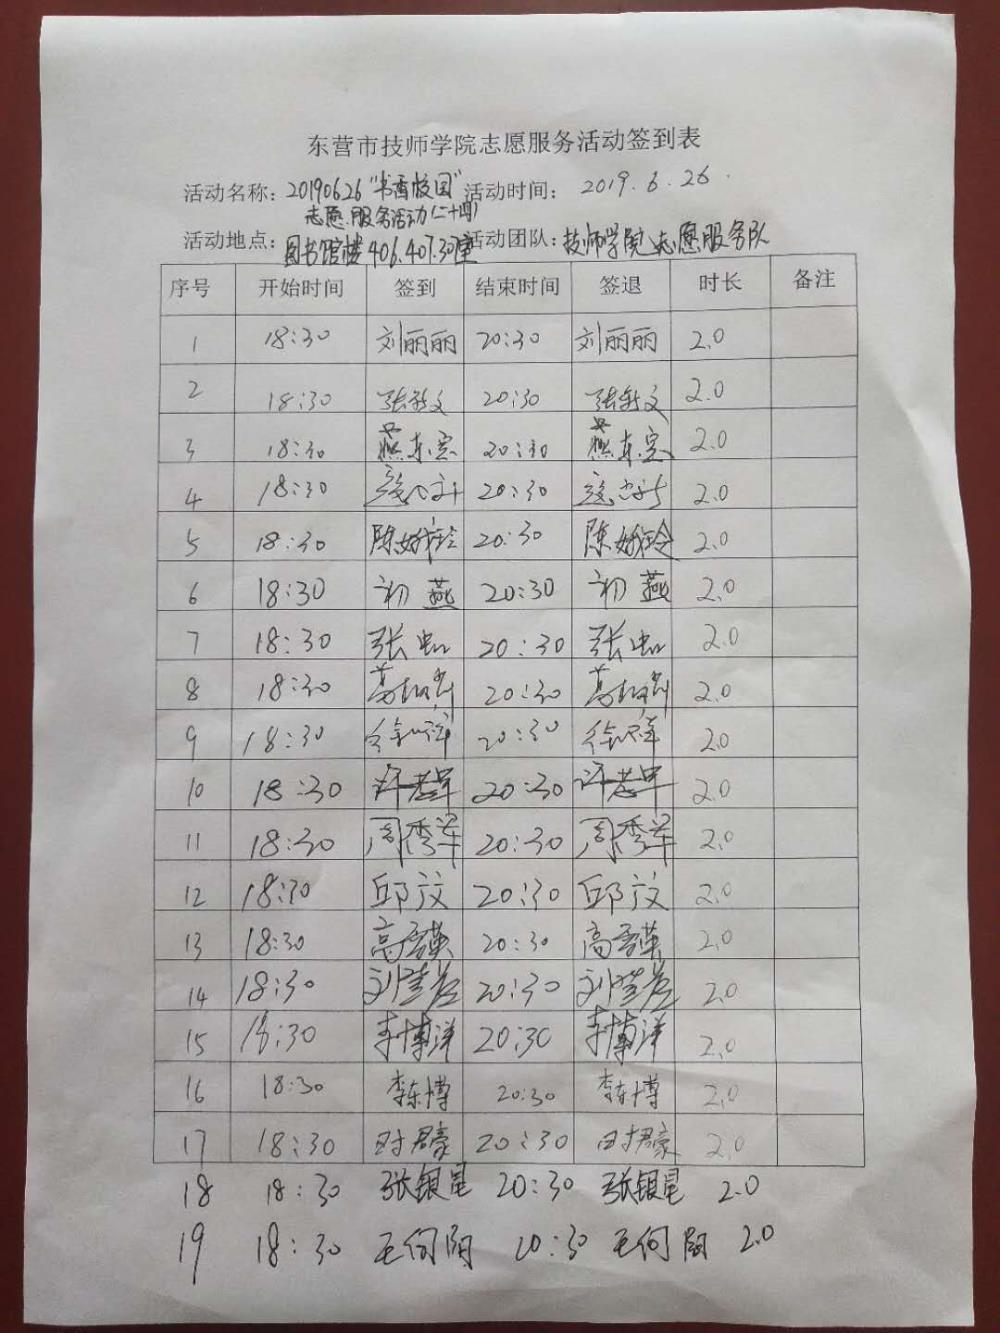 东营市技师学院志愿服务活动签到表
活动名称：20190626“书香校园” 活动时间：2019.6.26.
志愿服务活动(二十四)
活动地点：图书馆楼406.407.307室 活动团队：技师学院志愿服务队
序号 开始时间 签到 结束时间 签退 时长 备注
1 18:30 刘丽丽 20:30 刘丽丽 2.0
2 18:30 张新文 20:30 张新文 2.0
3 18:30 燕东宝 20:30 燕东宝 2.0
4 18:30 20:30 2.0
5 18:30 陈娥玲 20:30 陈娥玲 2.0
6 18:30 初燕 20:30 初燕 2.0
7 18:30 张虹 20:30 张虹 2.0
8 18:30 20:30 2.0
9 18:30 20:30 2.0
10 18:30 20:30 2.0
11 18:30 周秀萍 20:30 周秀萍 2.0
12 18:30 邱汶 20:30 邱汶 2.0
13 18:30 高雪英 20:30 高雪英 2.0
14 18:30 20:30 2.0
15 18:30 李博洋 20:30 李博洋 2.0
16 18:30 李东博 20:30 李东博 2.0
17 18:30 时君豪 20:30 时君豪 2.0
18 18:30 张银星 20:30 张银星 2.0
19 18:30 王向阳 20:30 王向阳 2.0